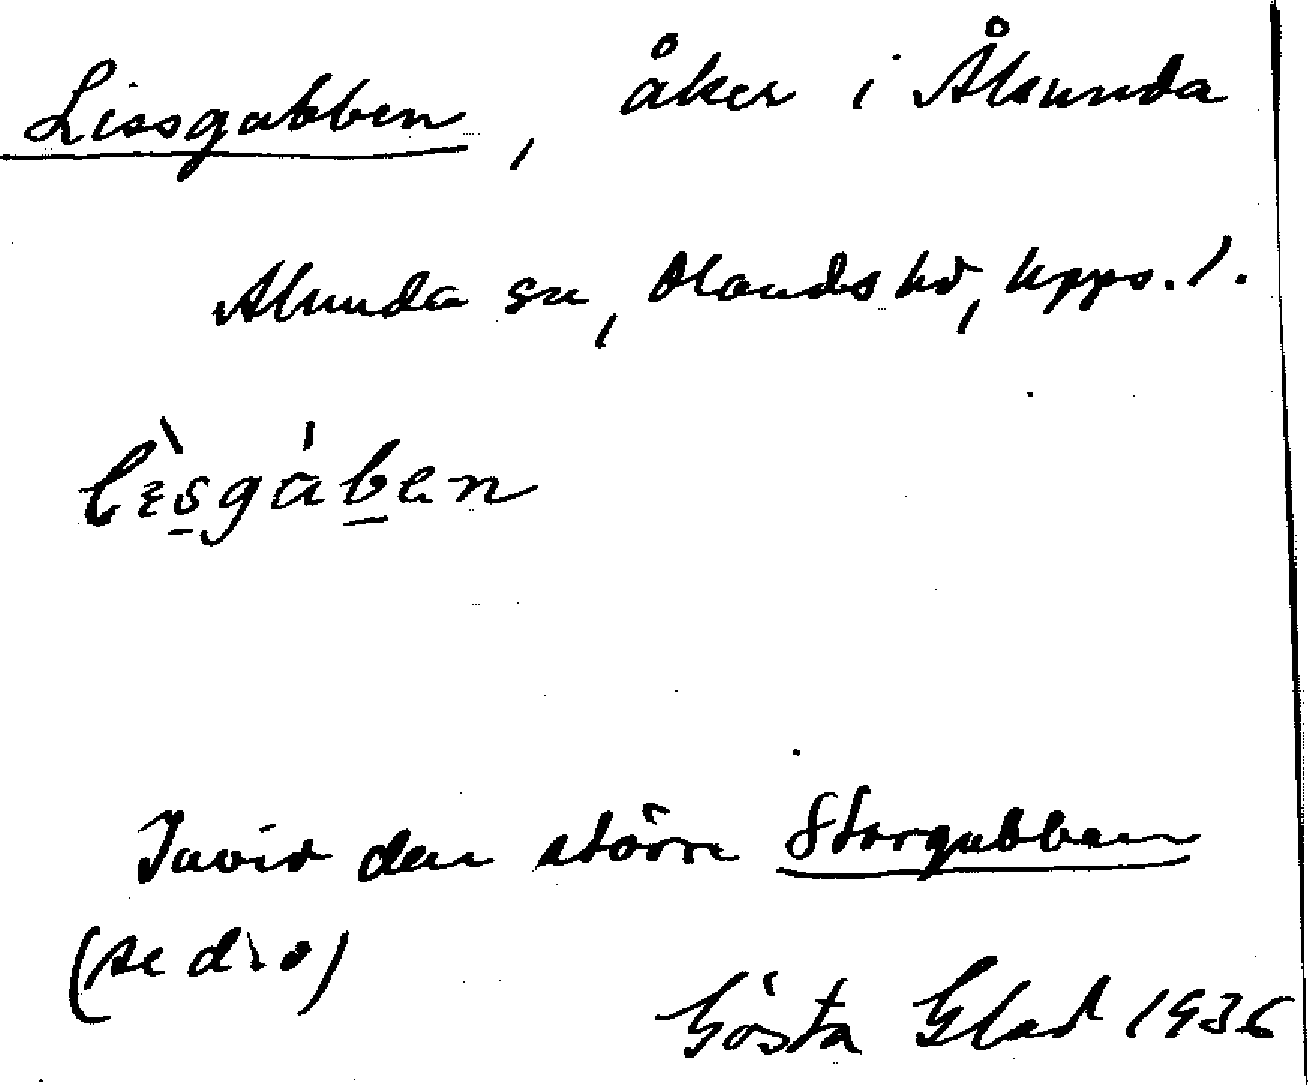 Lissgabben, åker i Åkunda
Alunda sn, Olands hd, Upps. l.
lìsgában
Invid den större Storgabben
(se d:o)
Gösta Glad 1936